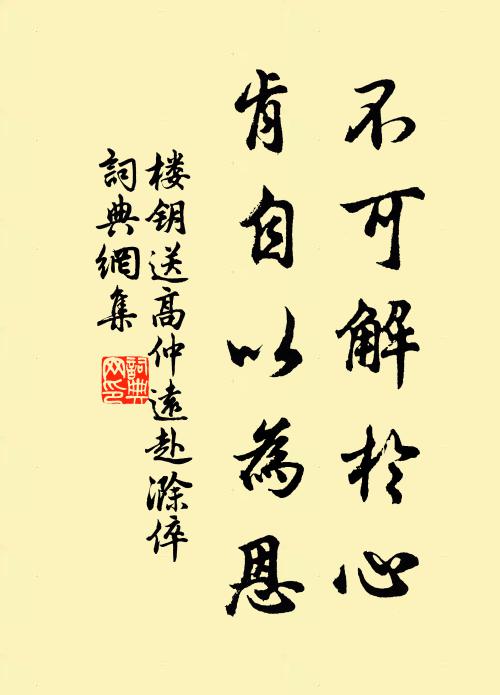 不可解於心
肯自以為恩
楼钥送高仲遠赴滁倅
詞典網集
詞典网印